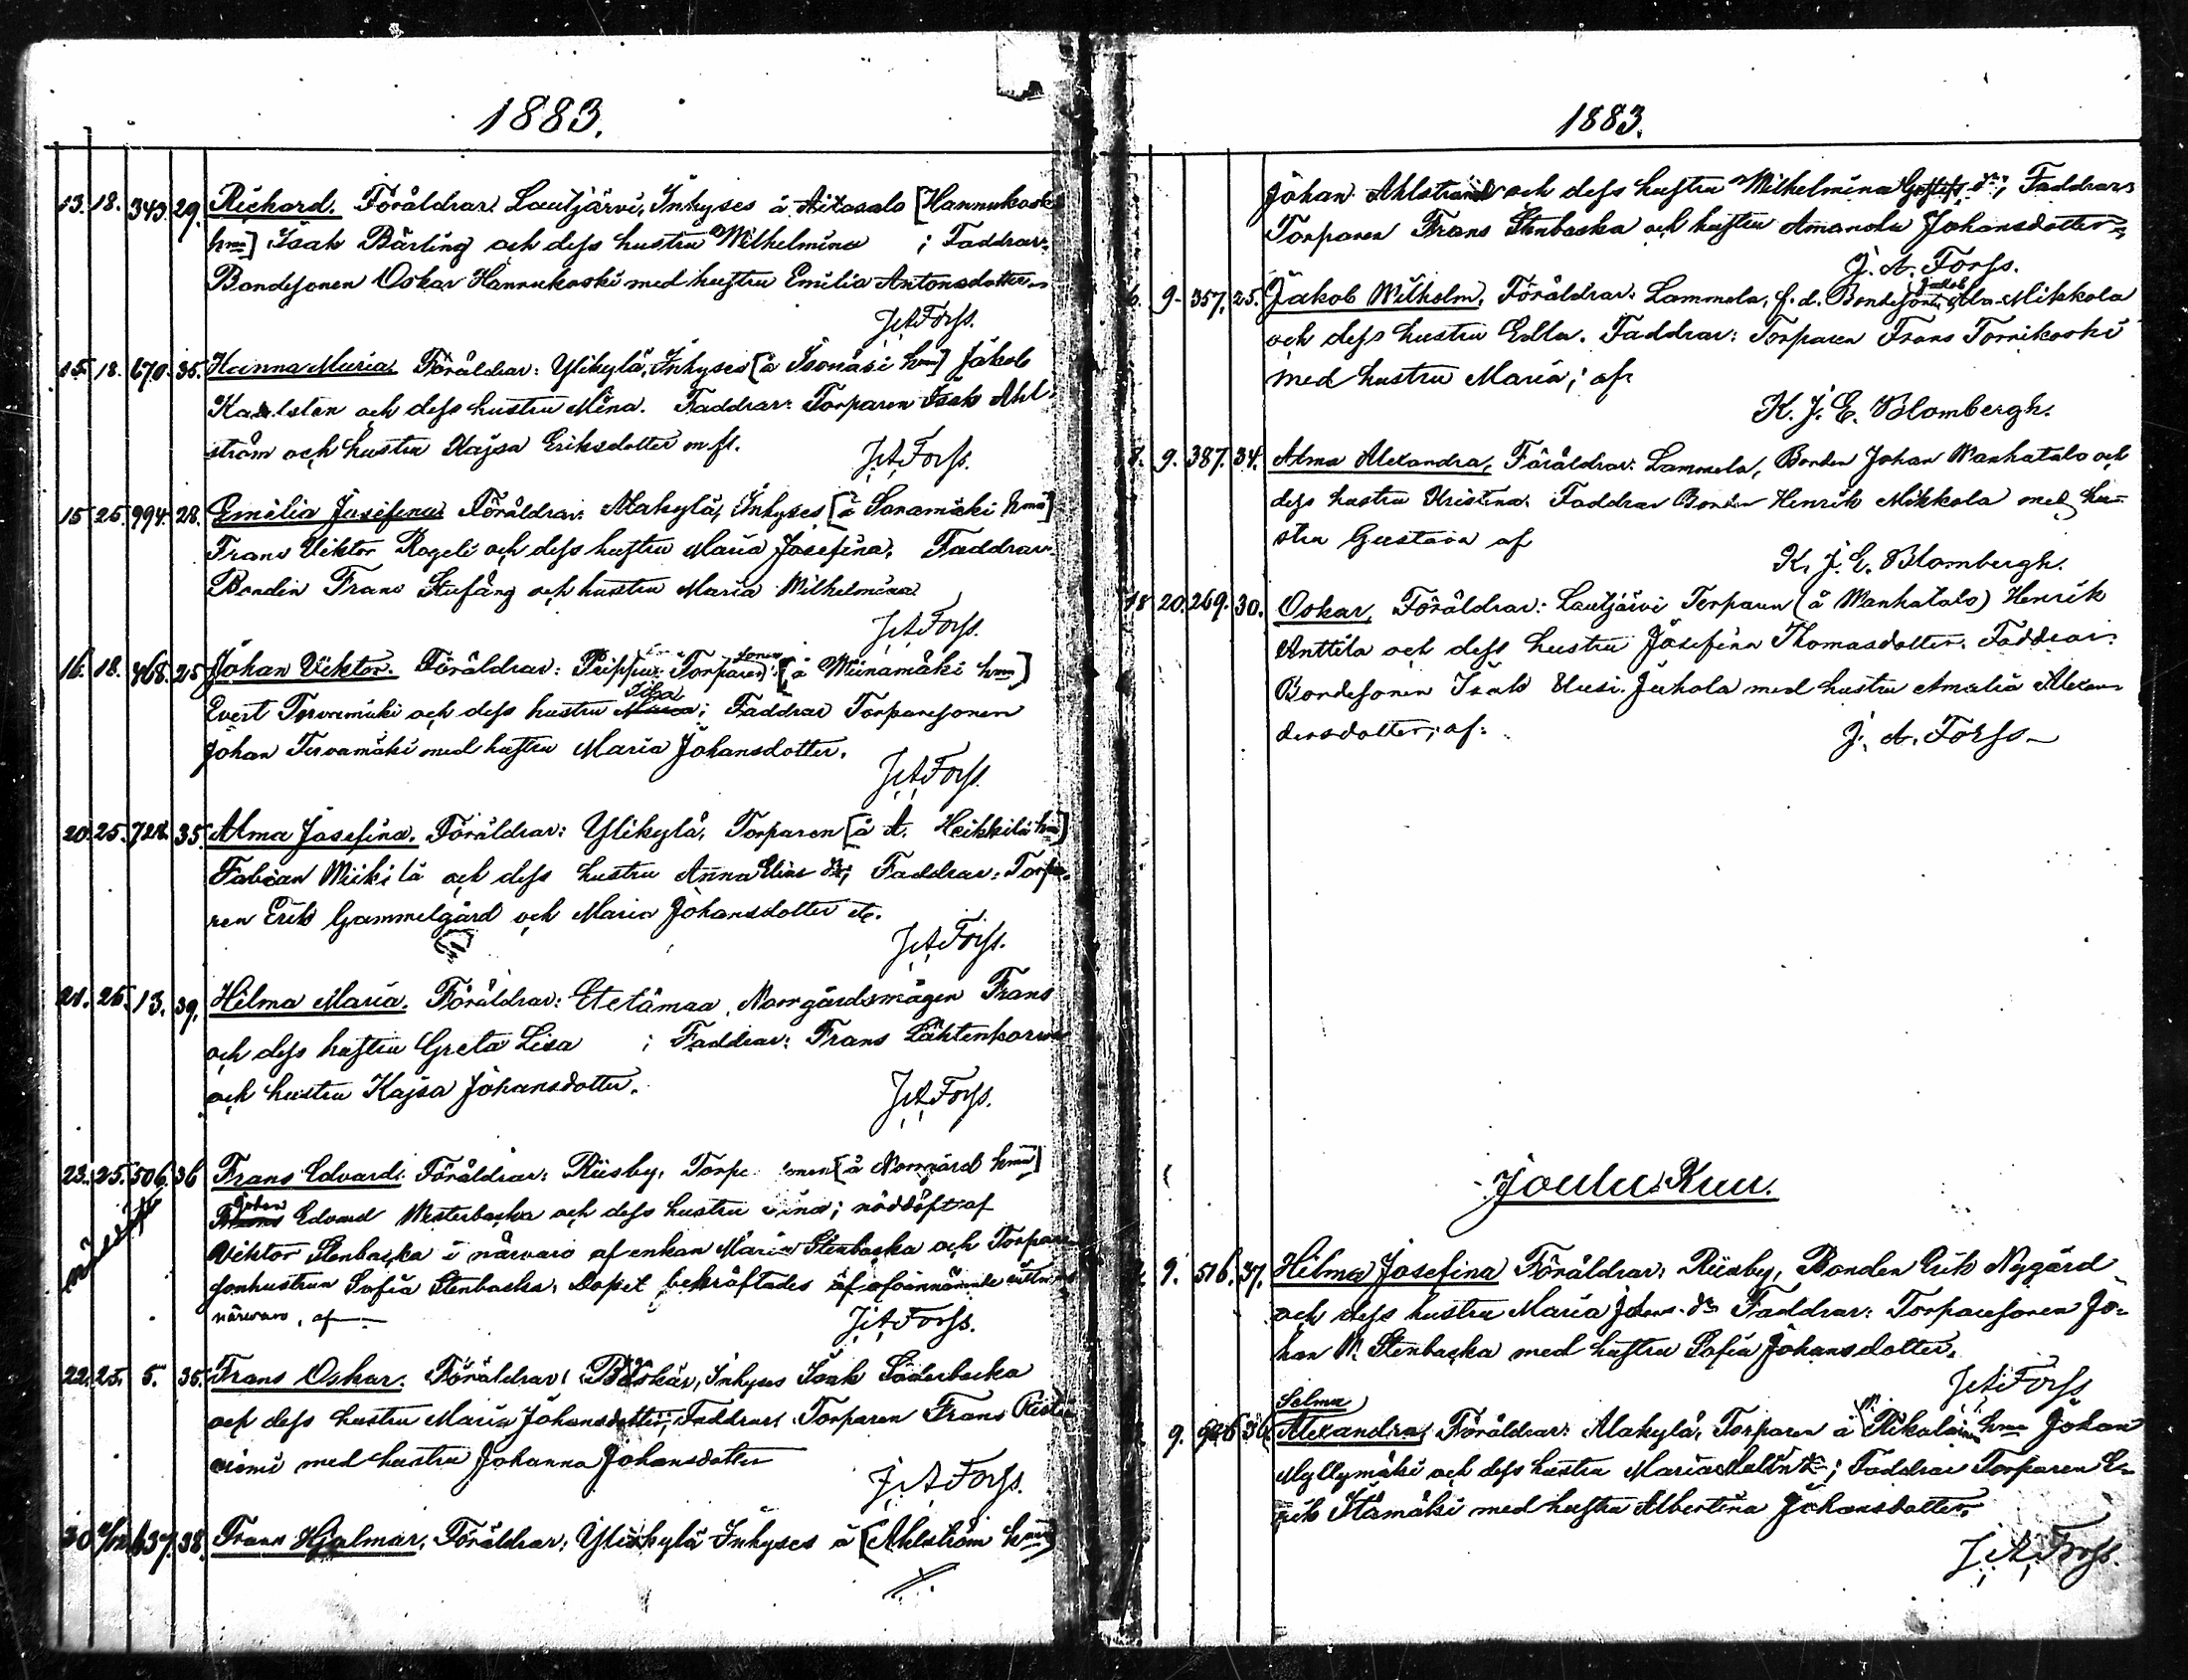 1883.
13. 18. 343. 29. Richard. Föräldrar: Lautjärvi, Inhyses å Aitasalo [Hannukoski
hmn] Isak Bärling och dess hustru Wilhelmina ; Faddrar:
Bondesonen Oskar Hannukoski med hustru Emilia Antonsdotter
J.A.Forss.
15. 18. 670. 35. Hanna Maria. Föräldrar: Ylikylä, Inhyses [å Isonäsi hmn] Jakob
och dess hustru Mina. Faddrar: Torparen Isak Ahl-
ström och hustru Kajsa Eriksdotter m.fl.
J.A.Forss.
15 25. 994. 28. Emilia Josefina. Föräldrar: Alakylä, Inhyses [å Saramäki hmn]
Frans Viktor Rogeli och dess hustru Maria Josefina. Faddrar:
Bonden Frans och hustru Maria Wilhelmina
J.A.Forss.
16. 18. 468. 25 Johan Viktor. Föräldrar: Peippu, Torparesonen [å Miinamäki hmn]
Evert Tervamäki och dess hustru Maria; Faddrar Torparesonen
Johan Tervamäki med hustru Maria Johansdotter.
J.A.Forss.
20. 25. 728. 35. Alma Josefina. Föräldrar: Ylikylä, Torparen [å A. Heikkilä hmn]
Fabian Mikilä och dess hustru Anna Elias dr; Faddrar: Torpa-
ren Erik Gammelgård och Maria Johansdotter etc.
J.A.Forss.
21. 25. 13. 39. Hilma Maria. Föräldrar: Etelämaa, Norrgårdsmågen Frans
och dess hustru Greta Lisa ; Faddrar: Frans Lähtenkorva
och hustru Kajsa Johansdotter.
J.A.Forss.
23. 25. 506. 36 Frans Edvard. Föräldrar: Riisby, [å Norrgård hmn]
Johan
Edvard Westerbacka och dess hustru ; nöddöpt af
Viktor Stenbacka i närvaro af enkan Maria Stenbacka och Torpare-
sonhustrun Sofia Stenbacka. Dopet bekräftades af ofvannämnde
närvaro, af
J.A.Forss.
22. 25. 5. 35. Frans Oskar. Föräldrar: Inhyses Isak Söderbacka
och dess hustru Maria Johansdotter; Faddrar: Torparen Frans
med hustru Johanna Johansdotter
J.A.Forss.
30 637. 38. Frans Hjalmar. Föräldrar: Ylikylä Inhyses å [Ahlström hmn]
1883.
Johan Ahlstrand och dess hustru Wilhelmina Gustafs dr; Faddrar:
Torparen Frans Stenbacka och hustru Amanda Johansdotter
J. A. Forss.
9. 357. 25. Jakob Wilhelm, Föräldrar: Lammela, f. d. Bondesonen Jakob Ala-Mikkola
och dess hustru Edla. Faddrar: Torparen Frans Tornikoski
med hustru Maria; af
K. J. E. Blombergh.
8. 9. 387. 34. Alma Alexandra, Föräldrar: Lammela, Bonden Johan Wanhatalo och
dess hustru Kristina. Faddrar Bonden Henrik Mikkola med hu-
stru Gustava af
K. J. E. Blombergh.
18 20. 269. 30. Oskar, Föräldrar: Lautjärvi Torparen (å Wanhatalo) Henrik
Anttila och dess hustru Josefina Thomasdotter. Faddrar:
Bondesonen Isak Uusi-Juhola med hustru Amalia Alexan-
dersdotter; af:
J. A. Forss
Joulu Kuu.
9. 516. 37. Hilma Josefina Föräldrar: Riisby, Bonden Erik Nygård
och dess hustru Maria Johans dr Faddrar: Torparesonen Jo-
han W. Stenbacka med hustru Sofia Johansdotter.
J.A.Forss
Selma
9. 926 36. Alexandra, Föräldrar: Alakylä, Torparen å hmn Johan
Myllymäki och dess hustru Maria ; Faddrar Torparen E-
rik Itämäki med hustru Albertina Johansdotter.
J.A.Forss.